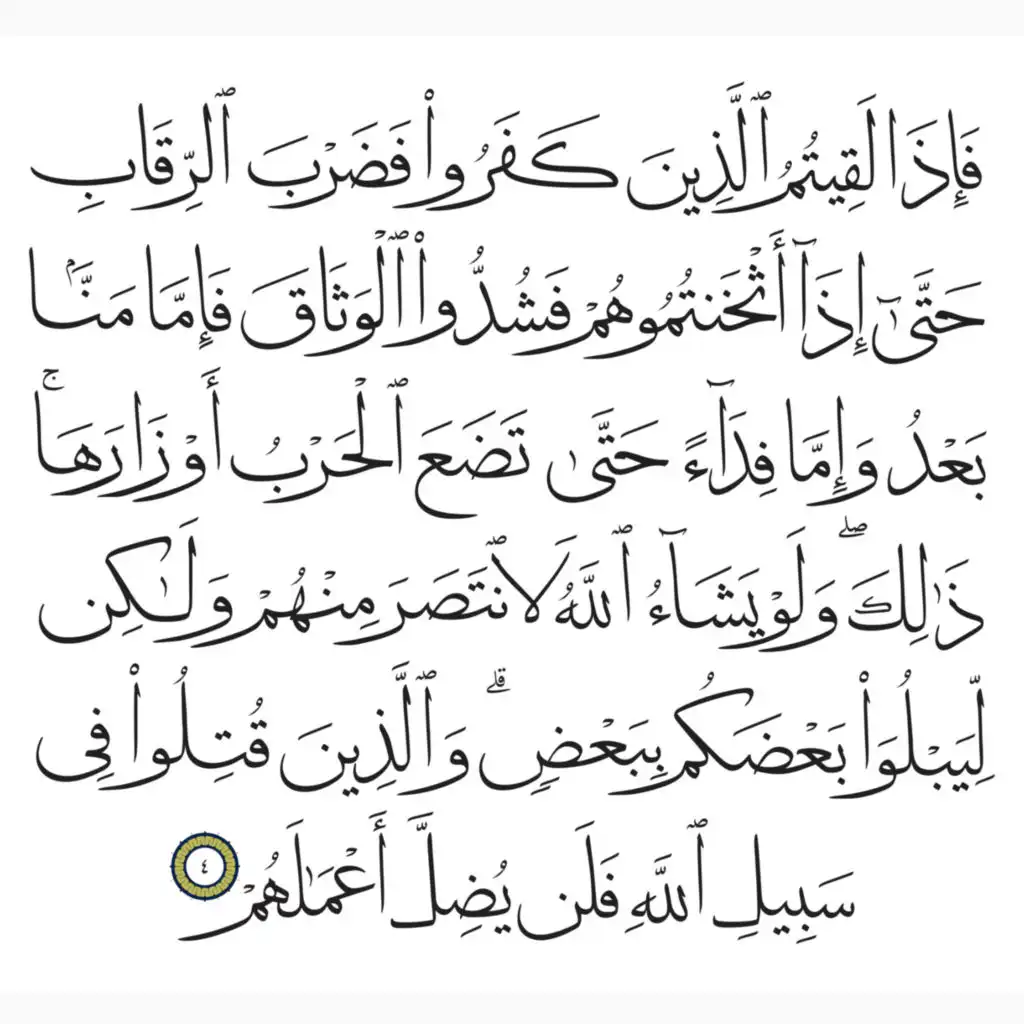 فَإِذَا لَقِيتُمُ ٱلَّذِينَ كَفَرُوا۟ فَضَرْبَ ٱلرِّقَابِ
حَتَّىٰٓ إِذَآ أَثْخَنتُمُوهُمْ فَشُدُّوا۟ ٱلْوَثَاقَ فَإِمَّا مَنَّۢا
بَعْدُ وَإِمَّا فِدَآءً حَتَّىٰ تَضَعَ ٱلْحَرْبُ أَوْزَارَهَا ۚ
ذَٰلِكَ ۖ وَلَوْ يَشَآءُ ٱللَّهُ لَٱنتَصَرَ مِنْهُمْ وَلَٰكِن
لِّيَبْلُوَا۟ بَعْضَكُم بِبَعْضٍ ۗ وَٱلَّذِينَ قُتِلُوا۟ فِى
سَبِيلِ ٱللَّهِ فَلَن يُضِلَّ أَعْمَٰلَهُمْ ٤